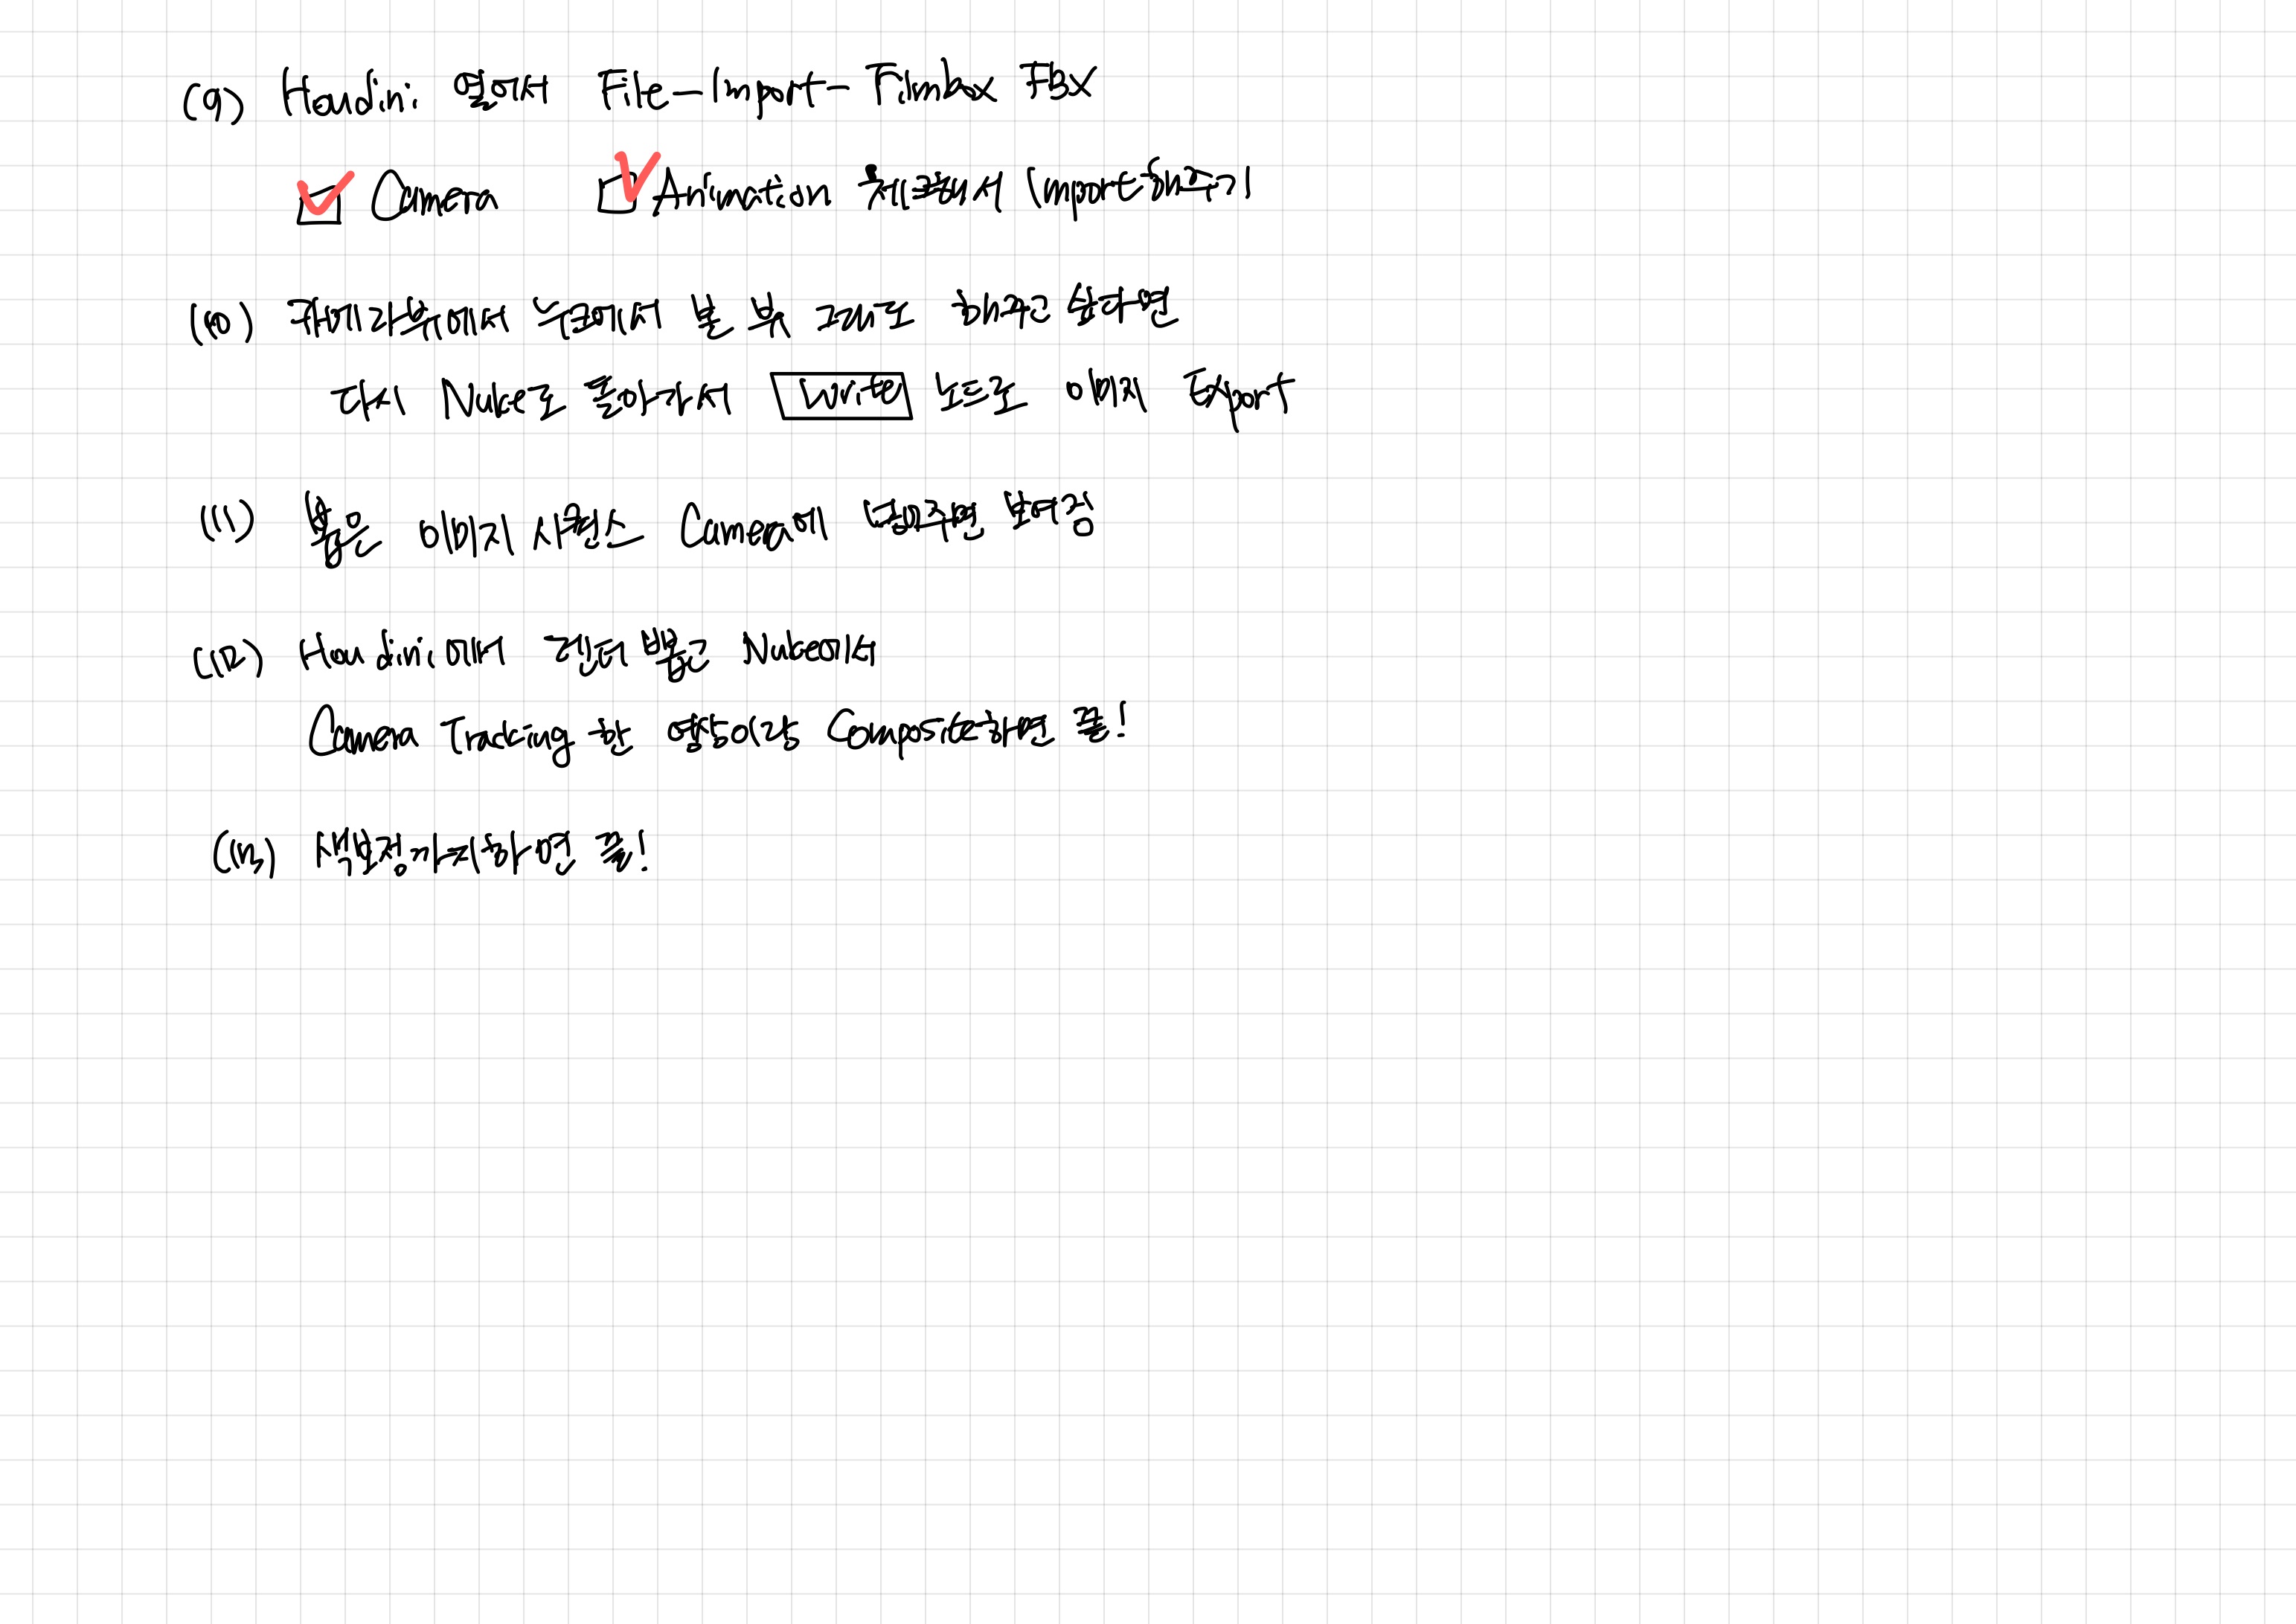 (9) Houdini 열어서 File - Import - Filmbox FBX
☑ Camera ☑ Animation 체크해서 Import해주기
(10) 카메라뷰에서 누크에서 본 뷰 그래도 하고싶다면
다시 Nuke로 돌아가서 Write 노드로 이미지 Export
(11) 뽑은 이미지 시퀀스 Camera에 넣어주면 보여짐
(12) Houdini에서 렌더 뽑고 Nuke에서
Camera Tracking 한 영상이랑 Composite하면 끝!
(13) 색보정까지하면 끝!